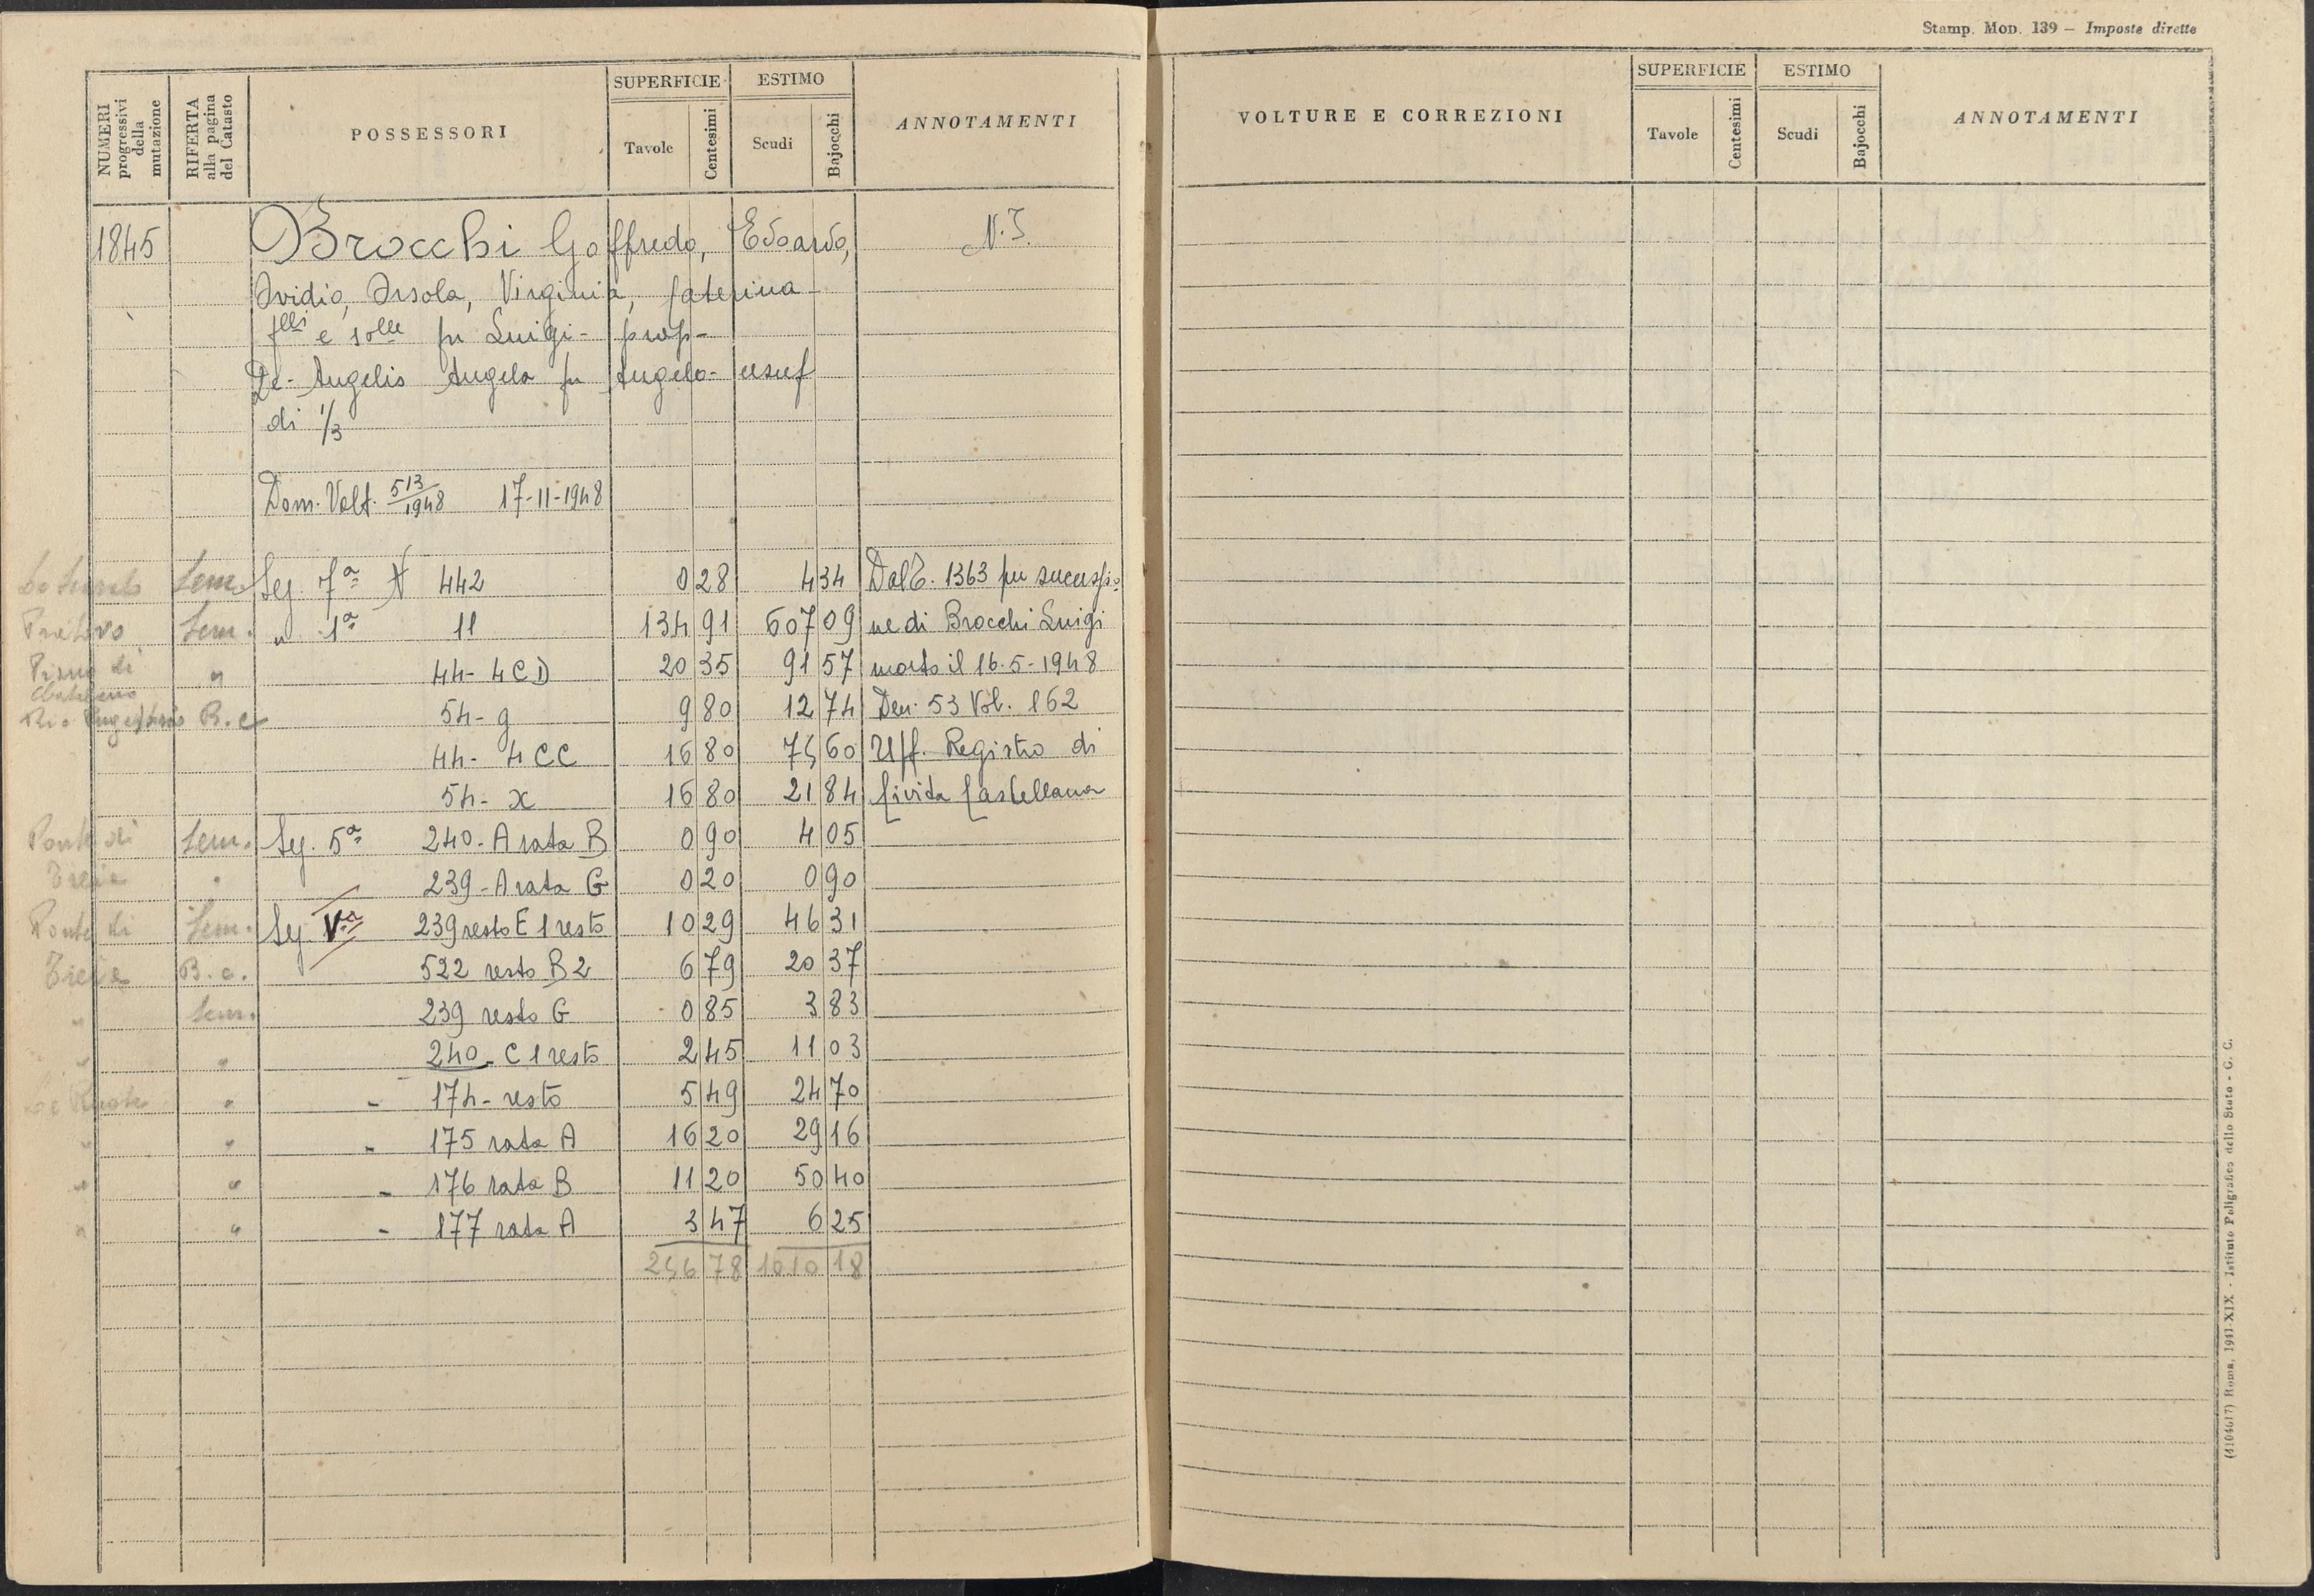 Stamp. Mod. 139 – Imposte dirette
NUMERI progressivi della mutazione
RIFERTA alla pagina del Catasto
POSSESSORI
SUPERFICIE
Tavole Centesimi
ESTIMO
Scudi Bajocchi
ANNOTAMENTI
VOLTURE E CORREZIONI
SUPERFICIE
Tavole Centesimi
ESTIMO
Scudi Bajocchi
ANNOTAMENTI
1845 Brocchi Goffredo, Edoardo, N.I.
Ovidio, Orsola, Virginia, Caterina
flli e solle fu Luigi - prop -
De-Angelis Angela fu Angelo - usuf
di 1/3
Dom. Volt. 513/1948 17-11-1948
Sem. Sez. 7ª N 442 0 28 4 34 Dal C. 1363 per successio
Sem. " 1ª 11 134 91 607 09 ne di Brocchi Luigi
Piano di " 44- 4 CD 20 35 91 57 morto il 16-5-1948
Rio B.c 54- g 9 80 12 74 Den. 53 Vol. 162
44- 4 CC 16 80 75 60 Uff. Registro di
54- x 16 80 21 84 Civita Castellana
Ponte di Sem. Sez. 5ª 240- A rata B 0 90 4 05
Treia " 239- A rata G 0 20 0 90
Ponte di Sem. Sez. Vª 239 resto E 1 resto 10 29 46 31
Treia B.c. 522 resto B2 6 79 20 37
" Sem. 239 resto G 0 85 3 83
" " 240- C 1 resto 2 45 11 03
" - 174- resto 5 49 24 70
" " - 175 rata A 16 20 29 16
" " - 176 rata B 11 20 50 40
" " - 177 rata A 3 47 6 25
256 78 1010 18
(4104617) Roma, 1941-XIX - Istituto Poligrafico dello Stato - G. C.